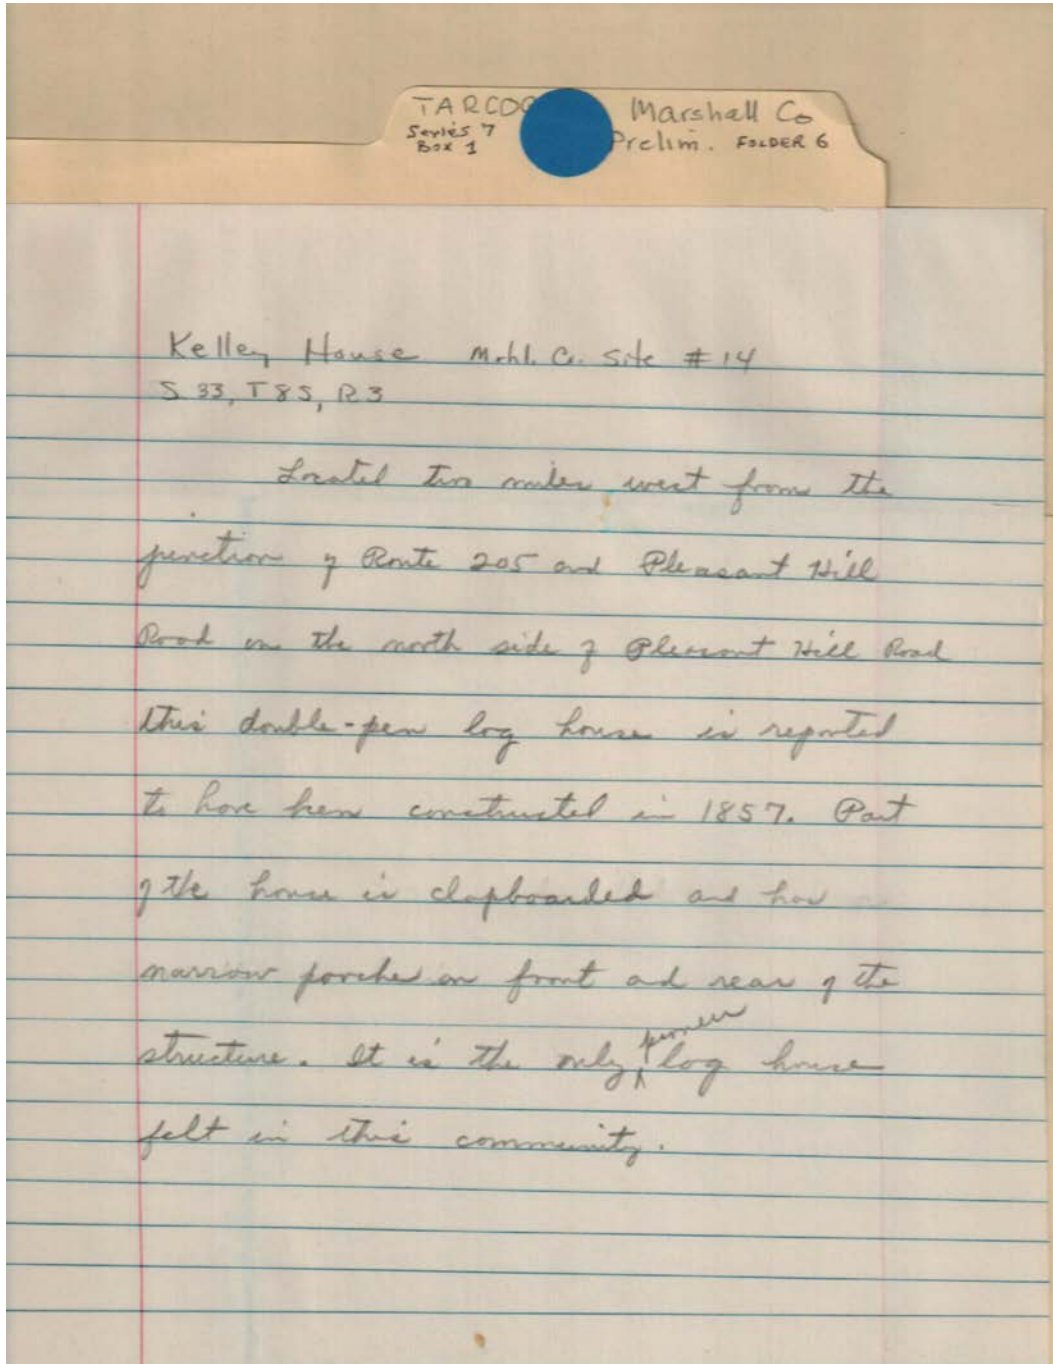 TARCOG
Series 7
Box 1
Marshall Co
Prelim. FOLDER 6
Kelley House Mrhl. Co. Site #14
S 33, T8S, R3
Located two miles west from the
junction of Route 205 and Pleasant Hill
Road on the north side of Pleasant Hill Road
this double-pen log house is reported
to have been constructed in 1857. Part
of the house is clapboarded and has
narrow porches on front and rear of the
structure. It is the only pioneer log house
felt in this community.